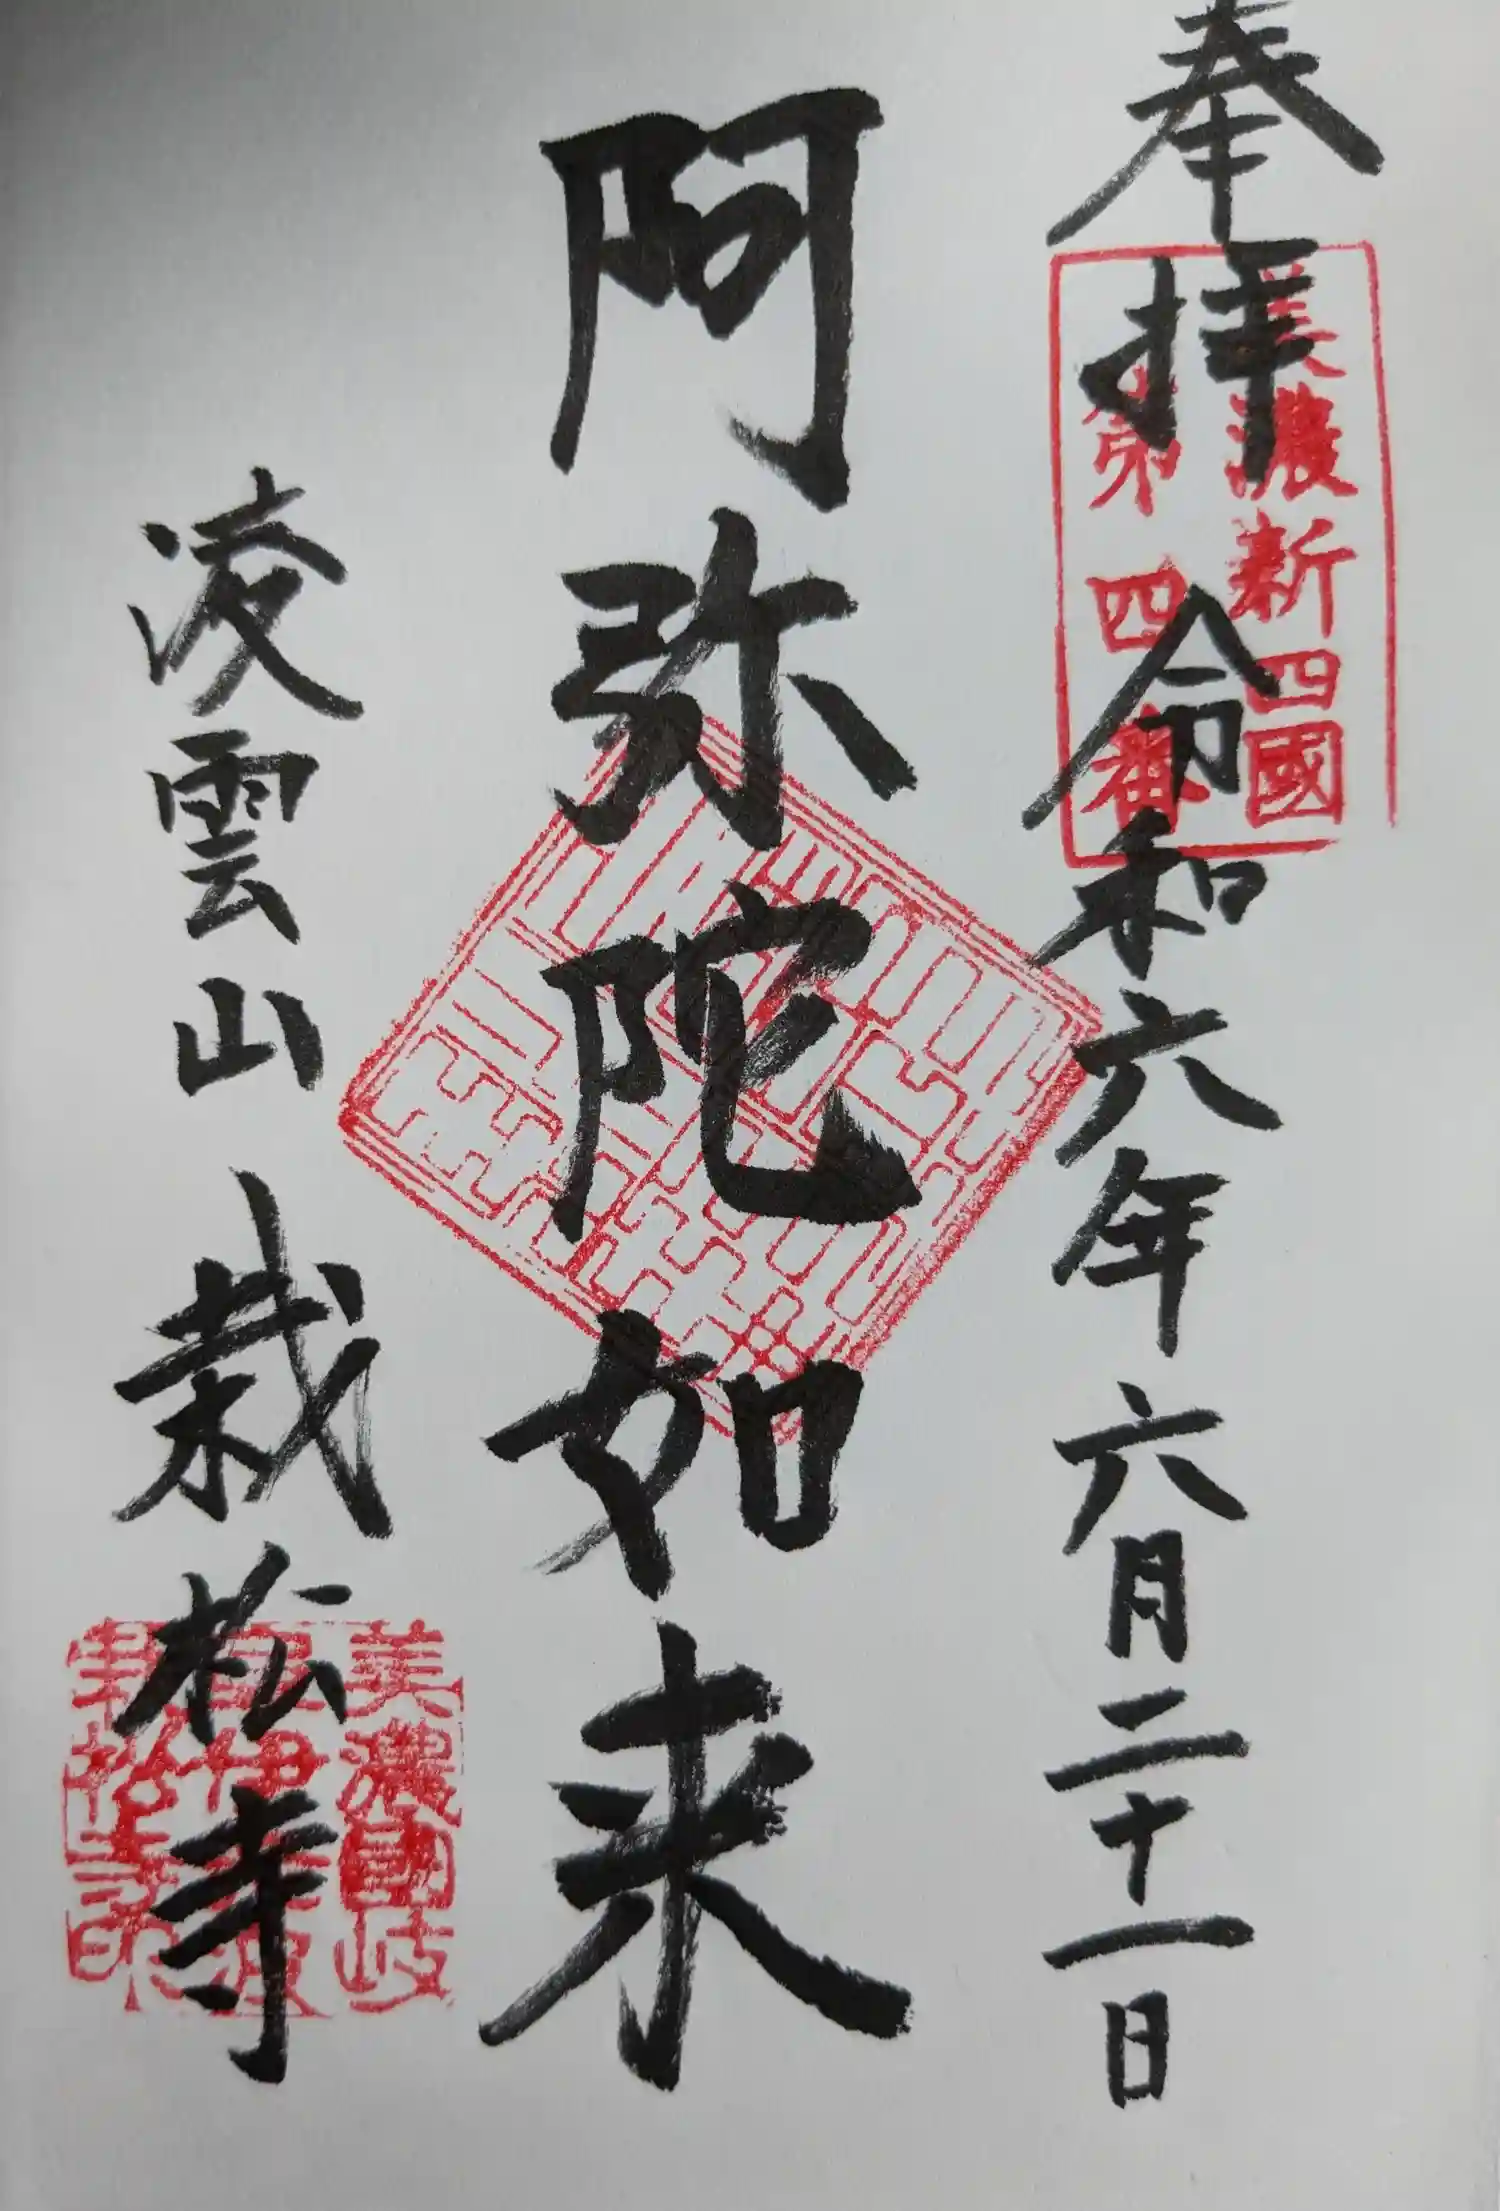 奉拝
令和六年六月二十一日
美濃新四國
第四番
阿弥陀如来
凌雲山 栽松寺
美濃國岐